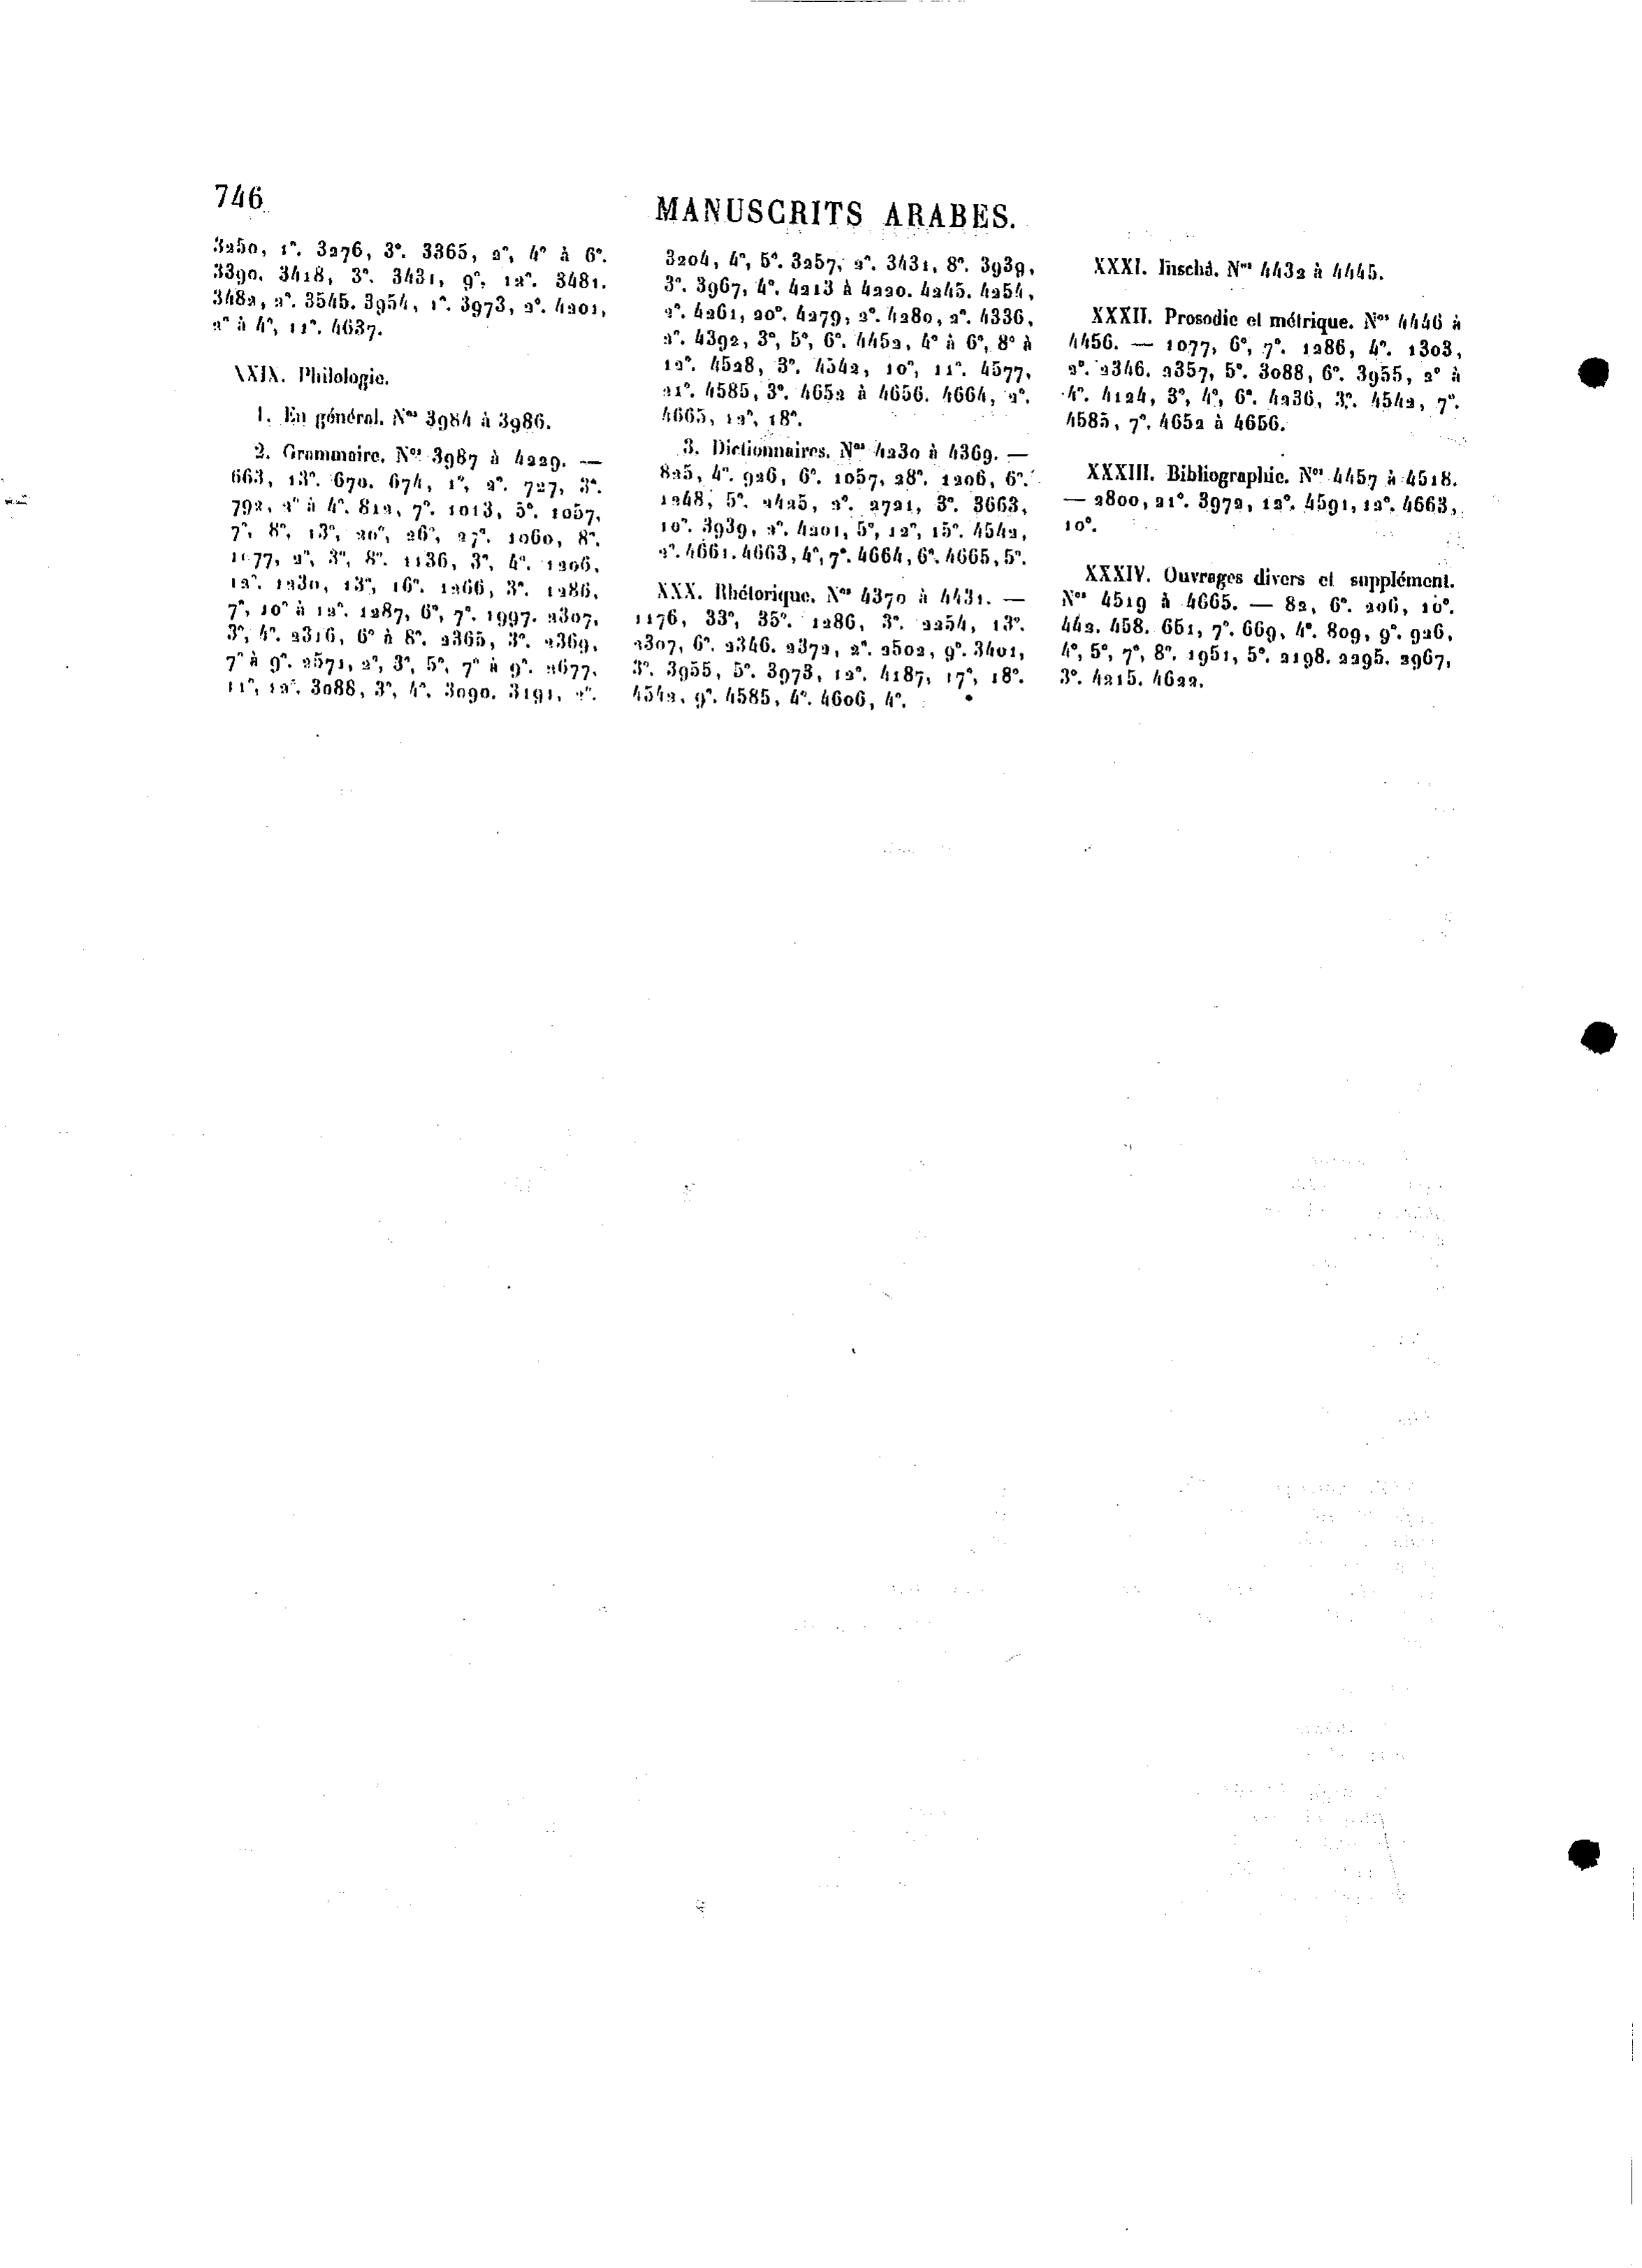 746
MANUSCRITS ARABES.
3250, 1°. 3276, 3°. 3365, 2°, 4° à 6°.
3390. 3418, 3°. 3431, 9°, 12°. 3481.
3482, 2°. 3545. 3954, 1°. 3973, 2°. 4201,
2° à 4°, 11°. 4637.
XXIX. Philologie.
1. En général. Nos 3984 à 3986.
2. Grammaire. Nos 3987 à 4229. —
663, 13°. 670. 674, 1°, 2°. 727, 3°.
792, 2° à 4°. 812, 7°. 1013, 5°. 1057,
7°, 8°, 13°, 20°, 26°, 27°. 1060, 8°.
1077, 2°, 3°, 8°. 1136, 3°, 4°. 1206,
12°. 1230, 13°, 16°. 1266, 3°. 1286,
7°, 10° à 12°. 1287, 6°, 7°. 1997. 2307,
3°, 4°. 2316, 6° à 8°. 2365, 3°. 2369,
7° à 9°. 2571, 2°, 3°, 5°, 7° à 9°. 2677,
11°, 12°. 3088, 3°, 4°. 3090. 3191, 2°.
3204, 4°, 5°. 3257, 2°. 3431, 8°. 3939,
3°. 3967, 4°. 4213 à 4220. 4245. 4254,
2°. 4261, 20°. 4279, 2°. 4280, 2°. 4336,
2°. 4392, 3°, 5°, 6°. 4452, 4° à 6°, 8° à
12°. 4528, 3°. 4542, 10°, 11°. 4577,
21°. 4585, 3°. 4652 à 4656. 4664, 2°.
4665, 12°, 18°.
3. Dictionnaires. Nos 4230 à 4369. —
825, 4°. 926, 6°. 1057, 28°. 1206, 6°.
1248, 5°. 2425, 2°. 2721, 3°. 3663,
10°. 3939, 2°. 4201, 5°, 12°, 15°. 4542,
2°. 4661. 4663, 4°, 7°. 4664, 6°. 4665, 5°.
XXX. Rhétorique. Nos 4370 à 4431. —
1176, 33°, 35°. 1286, 3°. 2254, 13°.
2307, 6°. 2346. 2372, 2°. 2502, 9°. 3401,
3°. 3955, 5°. 3973, 12°. 4187, 17°, 18°.
4542, 9°. 4585, 4°. 4606, 4°.
XXXI. Inschâ. Nos 4432 à 4445.
XXXII. Prosodie et métrique. Nos 4446 à
4456. — 1077, 6°, 7°. 1286, 4°. 1303,
2°. 2346. 2357, 5°. 3088, 6°. 3955, 2° à
4°. 4124, 3°, 4°, 6°. 4236, 3°. 4542, 7°.
4585, 7°. 4652 à 4656.
XXXIII. Bibliographie. Nos 4457 à 4518.
— 2800, 21°. 3972, 12°. 4591, 12°. 4663,
10°.
XXXIV. Ouvrages divers et supplément.
Nos 4519 à 4665. — 82, 6°. 206, 10°.
442. 458. 651, 7°. 669, 4°. 809, 9°. 926,
4°, 5°, 7°, 8°. 1951, 5°. 2198. 2295. 2967,
3°. 4215. 4622.